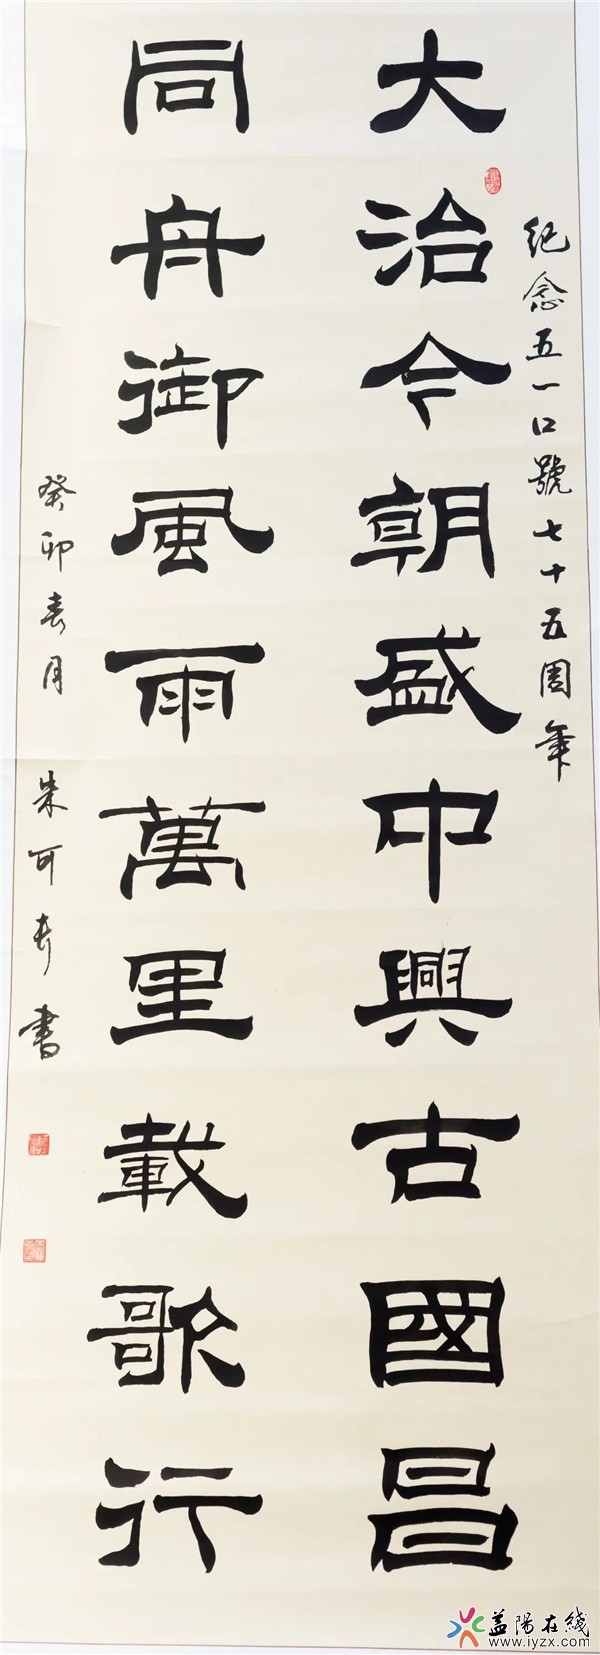 紀念五一口號七十五周年
大治今朝盛中興古國昌
同舟御風雨萬里載歌行
癸卯春月 朱可書
益陽在线
www.iyzx.cn